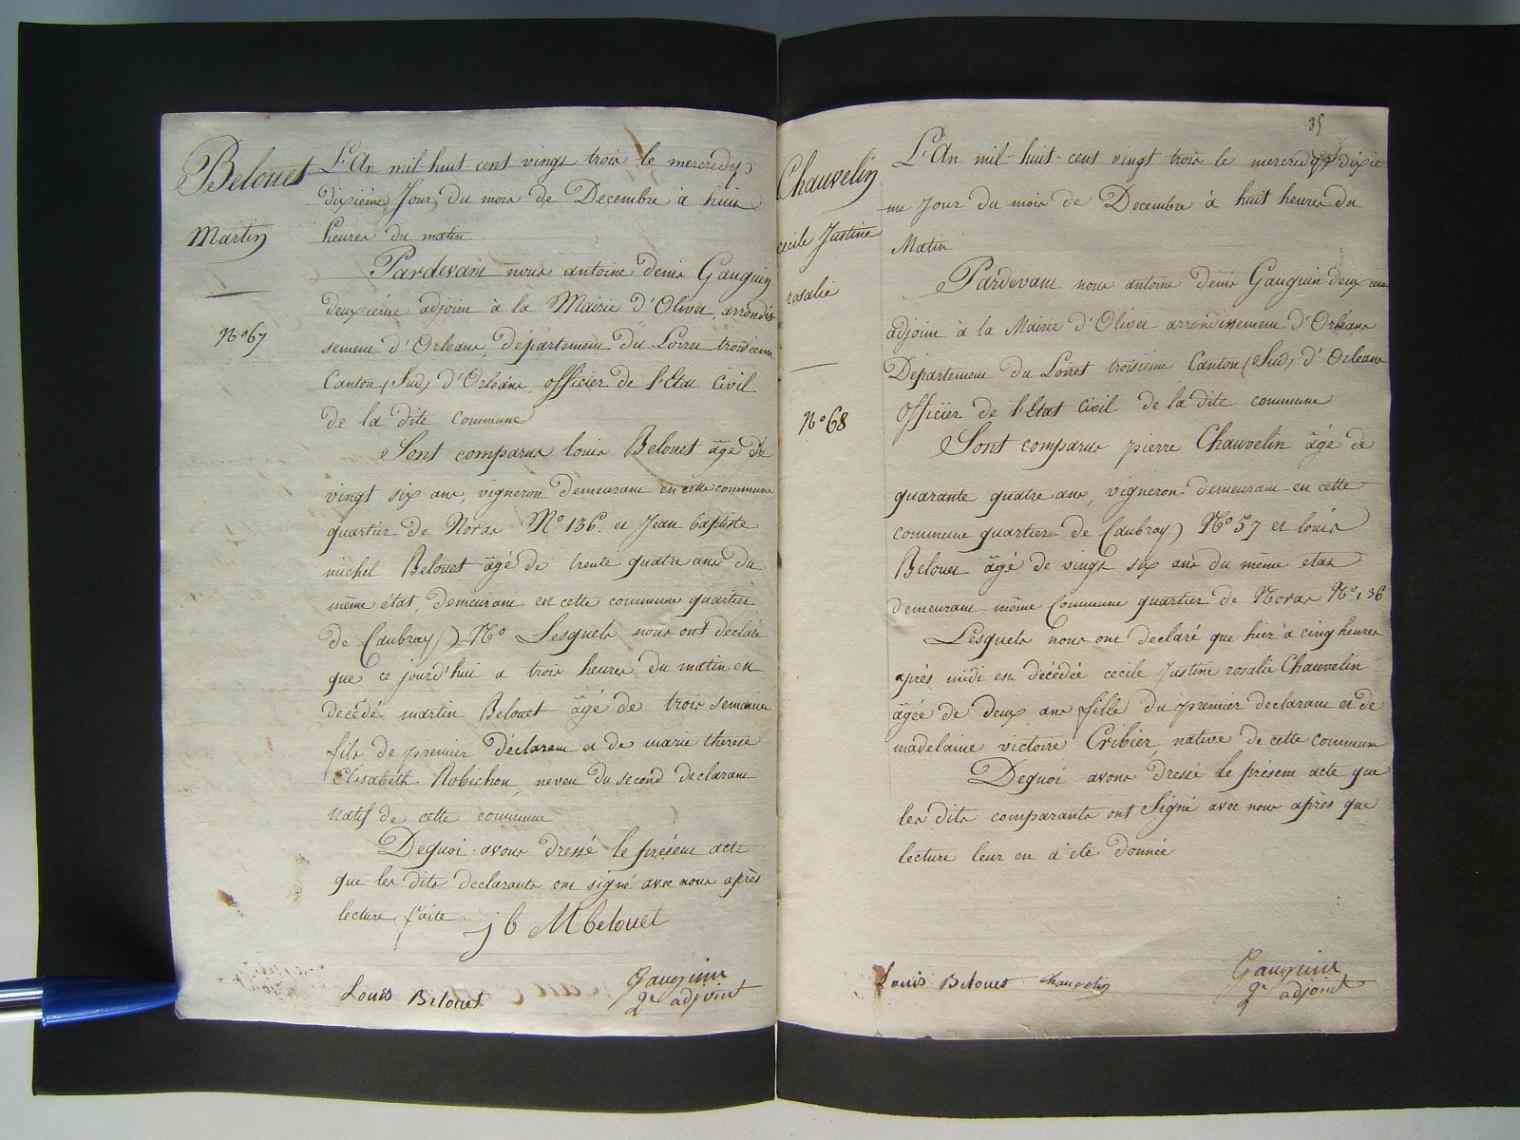 Belouet
Martin
N° 67
L'An mil-huit cent vingt trois le mercredy
dixième Jour du mois de Decembre à huit
heures du matin
Pardevant nous antoine denis Gauguin
deuxième adjoint à la Mairie d'Olivet, arrondis
sement d'Orleans, département du Loiret troisieme
Canton (Sud) d'Orleans officier de l'Etat Civil
de la dite commune
Sont comparus louis Belouet âgé de
vingt six ans, vigneron demeurant en cette commune
quartier de Noras N° 136. et Jean baptiste
michel Belouet âgé de trente quatre ans du
même état, demeurant en cette commune quartier
de Caubray N° Lesquels nous ont declaré
que ce jourd'hui a trois heures du matin est
decédé martin Belouet âgé de trois semaines
fils de premier déclarant et de marie therese
Elisabeth Robichon, neveu du second declarant
natif de cette commune
Dequoi avons dressé le présent acte
que les dits declarants ont signé avec nous après
lecture faite
j b M belouet
Louis Belouet
Gauguin
2e adjoint
35
Chauvelin
cecile Justine
rosalie
N° 68
L'An mil-huit-cent vingt trois le mercredy dixie
me Jour du mois de Decembre à huit heures du
Matin
Pardevant nous antoine denis Gauguin deuxieme
adjoint à la Mairie d'Olivet arrondissement d'Orleans
Département du Loiret troisieme Canton (Sud) d'Orleans
Officier de l'Etat Civil de la dite commune
Sont comparus pierre Chauvelin âgé de
quarante quatre ans, vigneron demeurant en cette
commune quartier de Caubray N° 57 et louis
Belouet âgé de vingt six ans du même etat
demeurant même Commune quartier de Noras N° 136
Lesquels nous ont declaré que hier à cinq heures
après midi est décédée cecile Justine rosalie Chauvelin
âgée de deux ans fille du premier declarant et de
madelaine victoire Cribier, native de cette commune
Dequoi avons dressé le présent acte que
les dits comparants ont Signé avec nous après que
lecture leur en a été donnée
Louis Belouet Chauvelin
Gauguin
2e adjoint